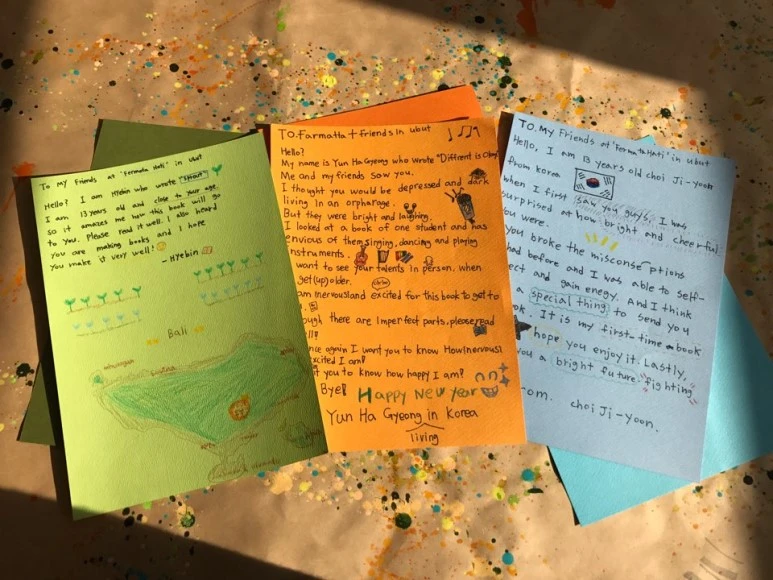 To My Friends at "Farmata Hati" in ubut
Hello? I am Hyebin who wrote "Sprout"
I am 13 years old and close to your age.
so it amazes me how this book will go
to you. Please read it well. I also heard
you are making books and I hope
you make it very well!
-Hyebin
Bali
TO. Farmatta + friends in ubut
Hello?
My name is Yun Ha Gyeong who wrote "Diffrent is Okay"
Me and my friends saw you.
I thought you would be depressed and dark
living in an orpharage.
But they were bright and laughing.
I looked at a book of one student and has
envious of them singing, dancing and playing
instruments.
want to see your talents in person. when
get(up)older.
am nervous and excited for this book to get to
ough there are Imperfect parts, please read
once again I want you to know How nervous?
excited I am?
t you to know how happy I am?
Bye! Happy New year
Yun Ha Gyeong in Korea
living
TO. My Friends at "Farmata Hati" in ubut
Hello, I am 13 years old choi Ji-yoon
from korea
when I first saw you guys, I was
surprised at how bright and cheerful
you were.
you broke the misconseptions
had before and I was able to self-
ect and gain enegy. And I think
a special thing to send you
ok. It is my first-time book
hope you enjoy it. Lastly,
you a bright future. fighting
om. choi Ji-yoon.